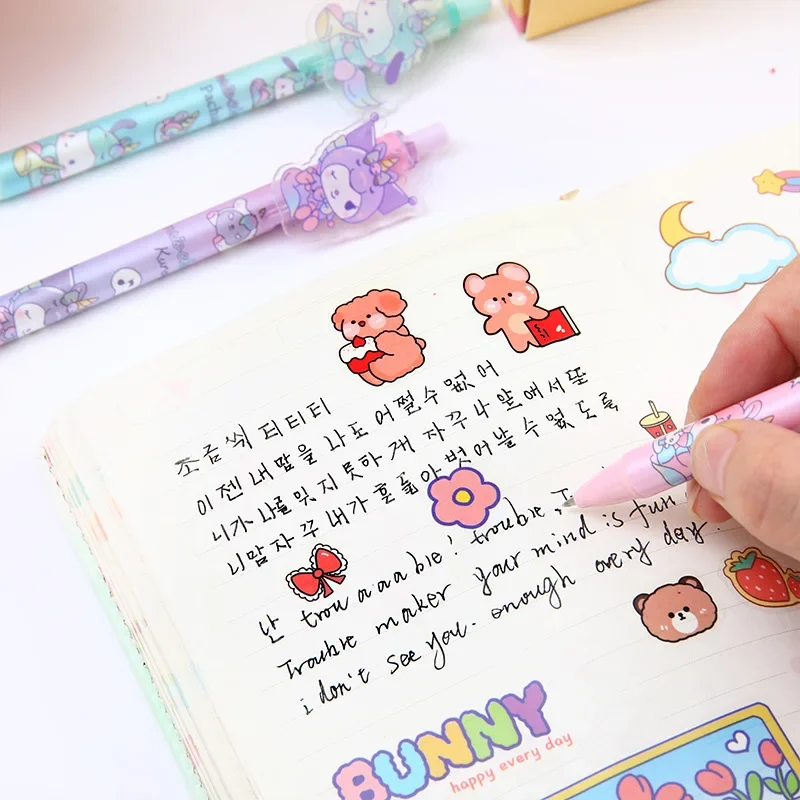 조금씩 티티티
이젠 내맘을 나도 어쩔수없어
니가 나를 잊지 못하게 자꾸 나 앞에서 또
니맘 자꾸 내가 흔들아 벗어날 수 없도록
난 trou a aa ble! trouble
Trouble maker your mind is fun
i don't see you. enough every day.
BUNNY
happy every day